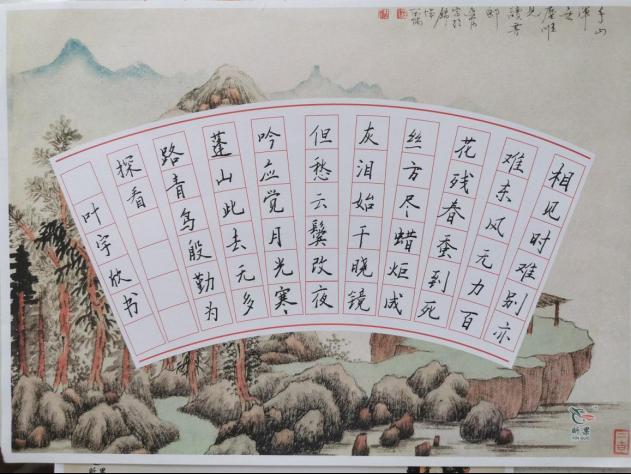 相见时难别亦
难东风无力百
花残春蚕到死
丝方尽蜡炬成
灰泪始干晓镜
但愁云鬓改夜
吟应觉月光寒
蓬山此去无多
路青鸟殷勤为
探看
叶宇欣书
昕果
XIN GUO